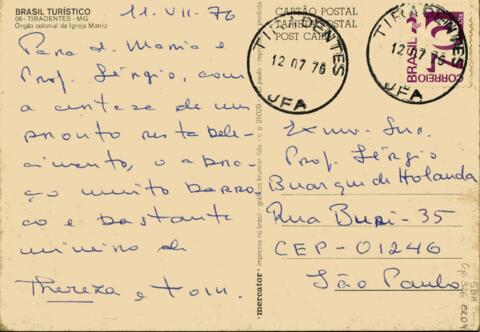 BRASIL TURÍSTICO
06 - TIRADENTES - MG
Órgão colonial da Igreja Matriz
11.VII-76
Para d. Maria e
Prof. Sérgio, com
a certeza de um
pronto restabele-
cimento, o abra-
ço muito barro-
co e bastante
mineiro de
Thereza e Tom.
CARTÃO POSTAL
POST CARD
mercator
impresso no brasil
TIRADENTES
12 07 76
JFA
TIRADENTES
12 07 76
JFA
BRASIL 76
CORREIO
Exmo. Snr.
Prof. Sérgio
Buarque de Holanda
Rua Buri - 35
CEP - 01246
São Paulo